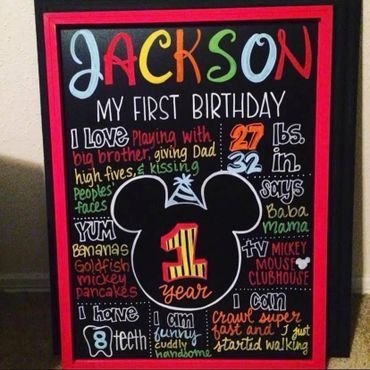 JACKSON
MY FIRST BIRTHDAY
I LOVE Playing with
big brother, giving Dad
high fives, & kissing
Peoples'
faces
27 lbs.
32 in.
YUM
BANANAS
Goldfish
mickey
pancakes
1
year
says
Baba
Mama
tv MICKEY
MOUSE
CLUBHOUSE
I have
8 teeth
I am
funny
cuddly
handsome
I can
crawl super
fast and I just
started walking